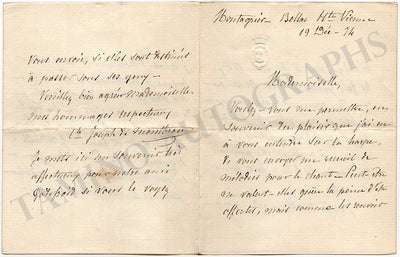 Montagrier Bellac Hte Vienne
19 Déc. 74
Mademoiselle,
Voulez-vous me permettre, en
souvenir du plaisir que j'ai eu
à vous entendre sur la harpe,
de vous envoyer un recueil de
mélodies pour le chant. Peut-être
ne valent-elles guère la peine d'être
offertes, mais comme les recevoir
Vous envoie, si elles sont destinées
à passer sous ses yeux
Veuillez bien agréer Mademoiselle
mes hommages respectueux
Joseph de
Je mets ici un souvenir très
affectueux pour notre ami
si vous le voyez
TAMINO AUTOGRAPHS